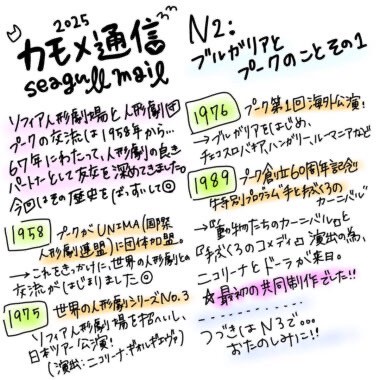 2025
カモメ通信
seagull mail
ソフィア人形劇場と人形劇団
プークの交流は1958年から…
67年にわたって、人形劇の良き
パートナーとして友交を深めてきました。
今回はその歴史を
1958 プークがUNIMA(国際
人形劇連盟)に団体加盟。
→これをきっかけに、世界の人形劇との
交流がはじまりました◎
1975 世界の人形劇シリーズNo.3
ソフィア人形劇場を招へいし、
日本ツアー公演!
(演出:ニコリーナ・ギオルギエヴァ)
N2:
ブルガリアと
プークのことその1
1976 プーク第1回海外公演!
→ブルガリアをはじめ、
チェコスロバキア、ハンガリー、ルーマニアなど
1989 プーク創立60周年記念
特別プログラム"手と手ぶくろの
カーニバル"
→『動物たちのカーニバル』と
『手ぶくろのコメディ』演出の為、
ニコリーナとドーラが来日。
☆最初の共同制作でした!!
つづきはN3で…
おたのしみに!!